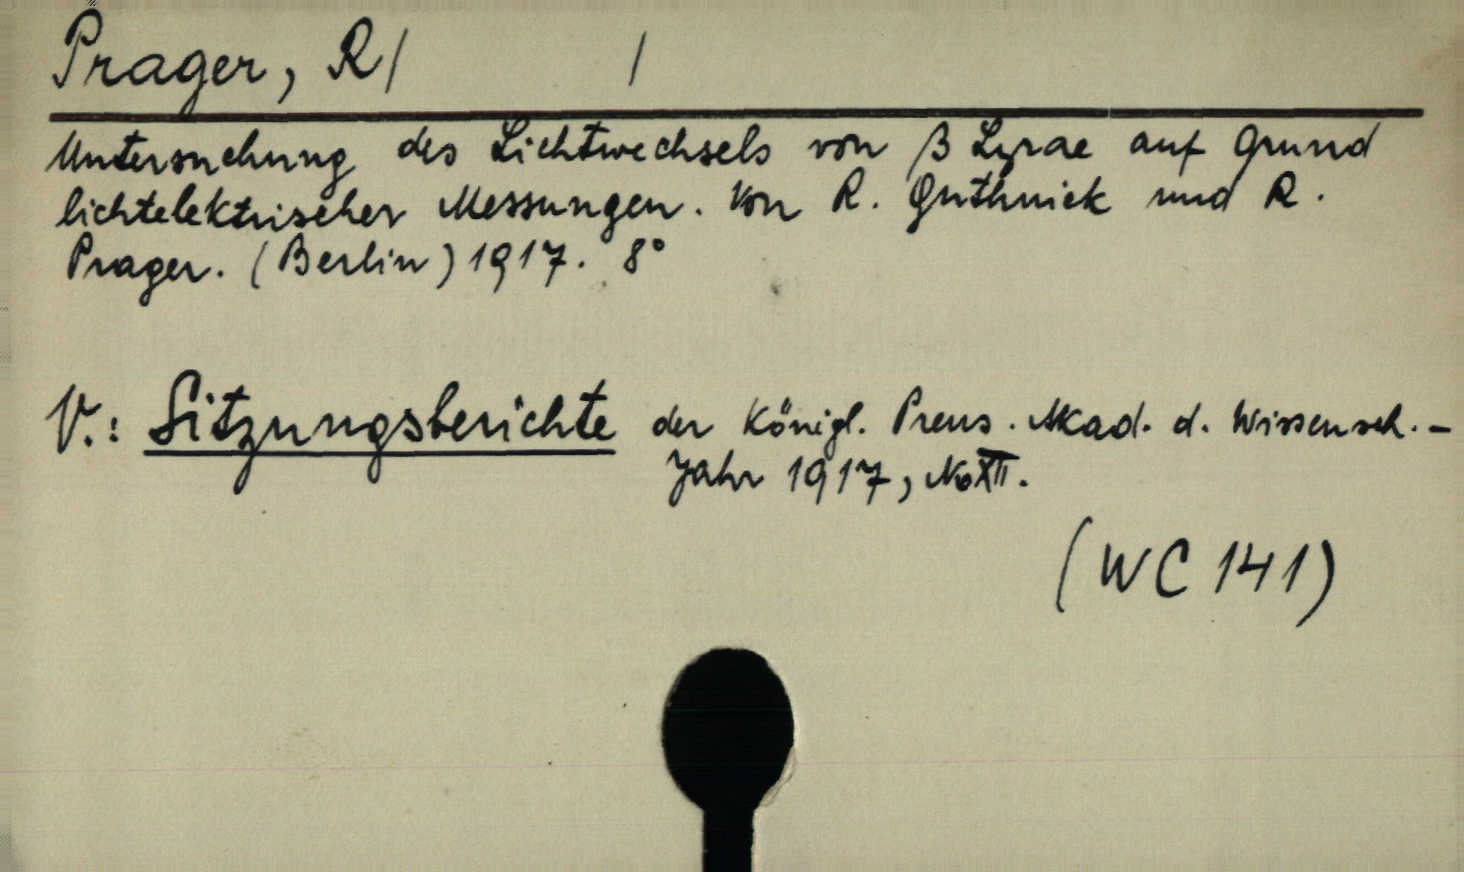 Prager, R/ /
Untersuchung des Lichtwechsels von β Lyrae auf Grund
lichtelektrischer Messungen. Von R. Guthnick und R.
Prager. (Berlin) 1917. 8°
V.: Sitzungsberichte der Königl. Preus. Akad. d. Wissensch. -
Jahr 1917, No XII.
(WC 141)